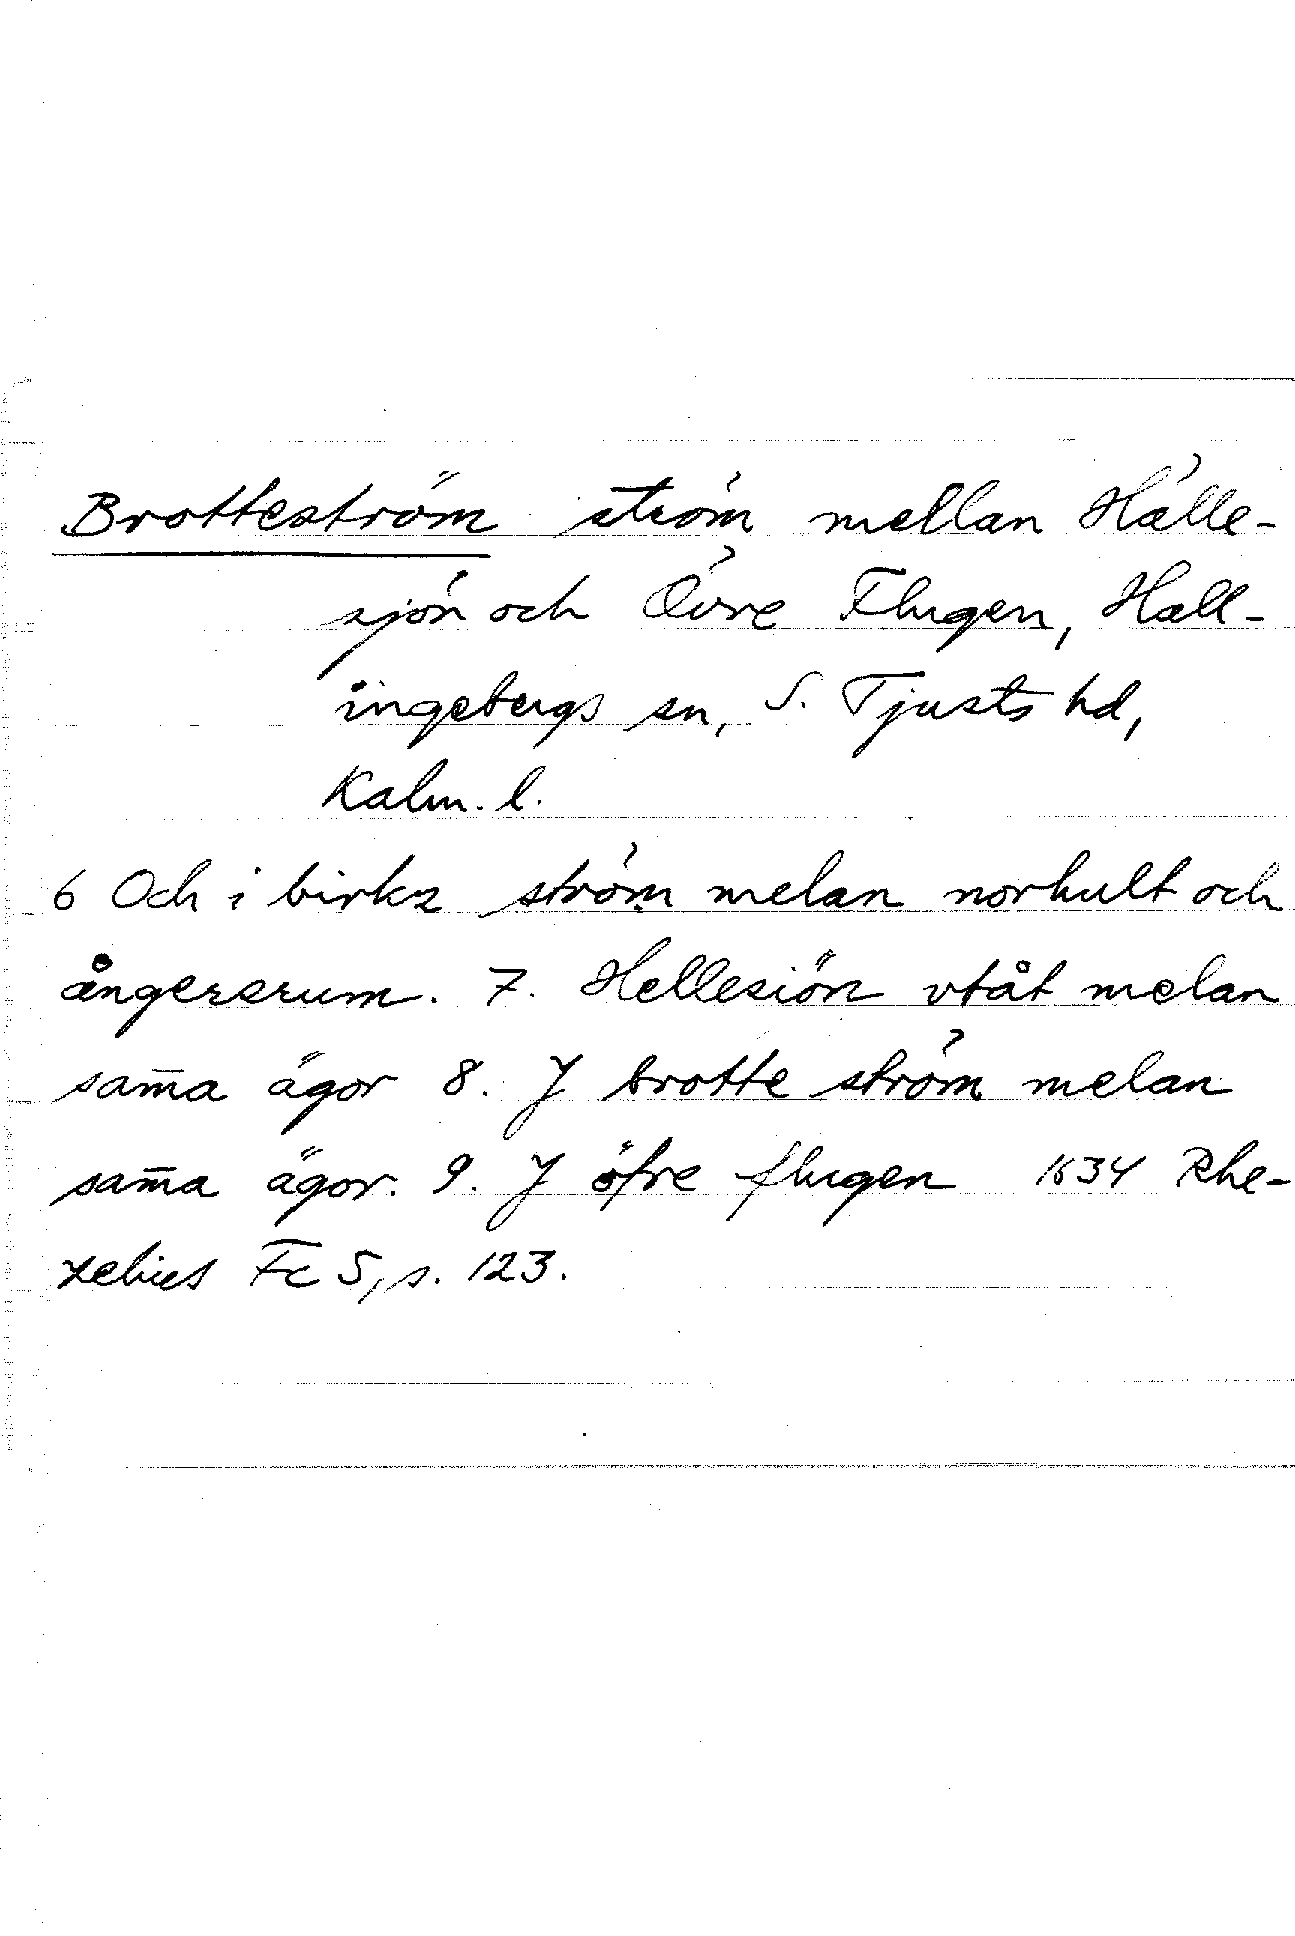 Brotteström ström mellan Hälle-
sjön och Övre Flugen, Hall-
ingebergs sn, S. Tjusts hd,
Kalm. l.
6 Och i birkz ström melan norhult och
ångersrum. 7. Hellesiön vtåt melan
sam̄a ägor 8. J brotte ström melan
sam̄a ägor. 9. J öfre flugen 1634 Rhe-
zelius Fc 5, s. 123.